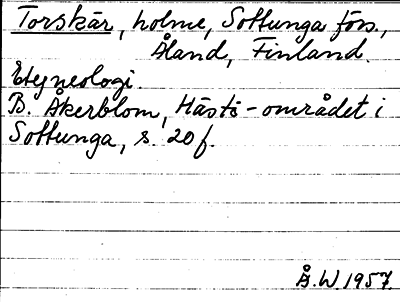 Torskär, holme, Sottunga förs.,
Åland, Finland.
Etymologi.
B. Åkerblom, Hästö-området i
Sottunga, s. 20 f.
Å.W. 1957.